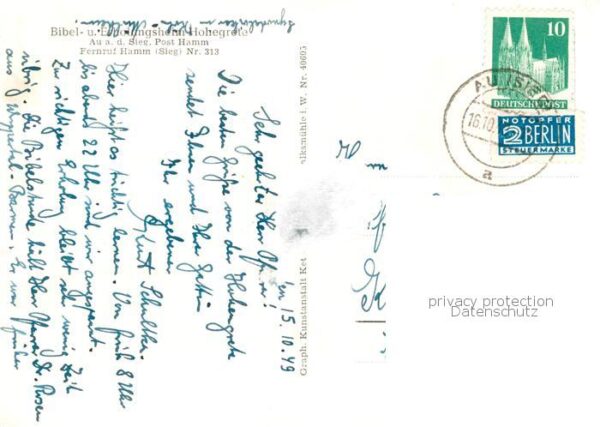 Bibel- u. Erholungsheim Hohegrete
Au a. d. Sieg, Post Hamm
Fernruf Hamm (Sieg) Nr. 313
15.10.49
Sehr geehrter Herr Pfarrer!
Die besten Grüße von der Hohengrete
sendet Ihnen und Ihrer Gattin
Ihr ergebener
Kurt Schultke.
Hier heißt es tüchtig lernen. Von früh 8 Uhr
bis abends 22 Uhr sind wir angespannt.
Zur richtigen Erholung bleibt sehr wenig Zeit
übrig. Die Bibelstunde hält Herr Pfarrer Dr.
aus Wuppertal-Barmen. Er war früher
Graph. Kunstanstalt Ket
alksmühle i. W. Nr. 40605
10
DEUTSCHE POST
NOTOPFER
2 BERLIN
STEUERMARKE
AU (SIEG)
16.10.
a
privacy protection
Datenschutz